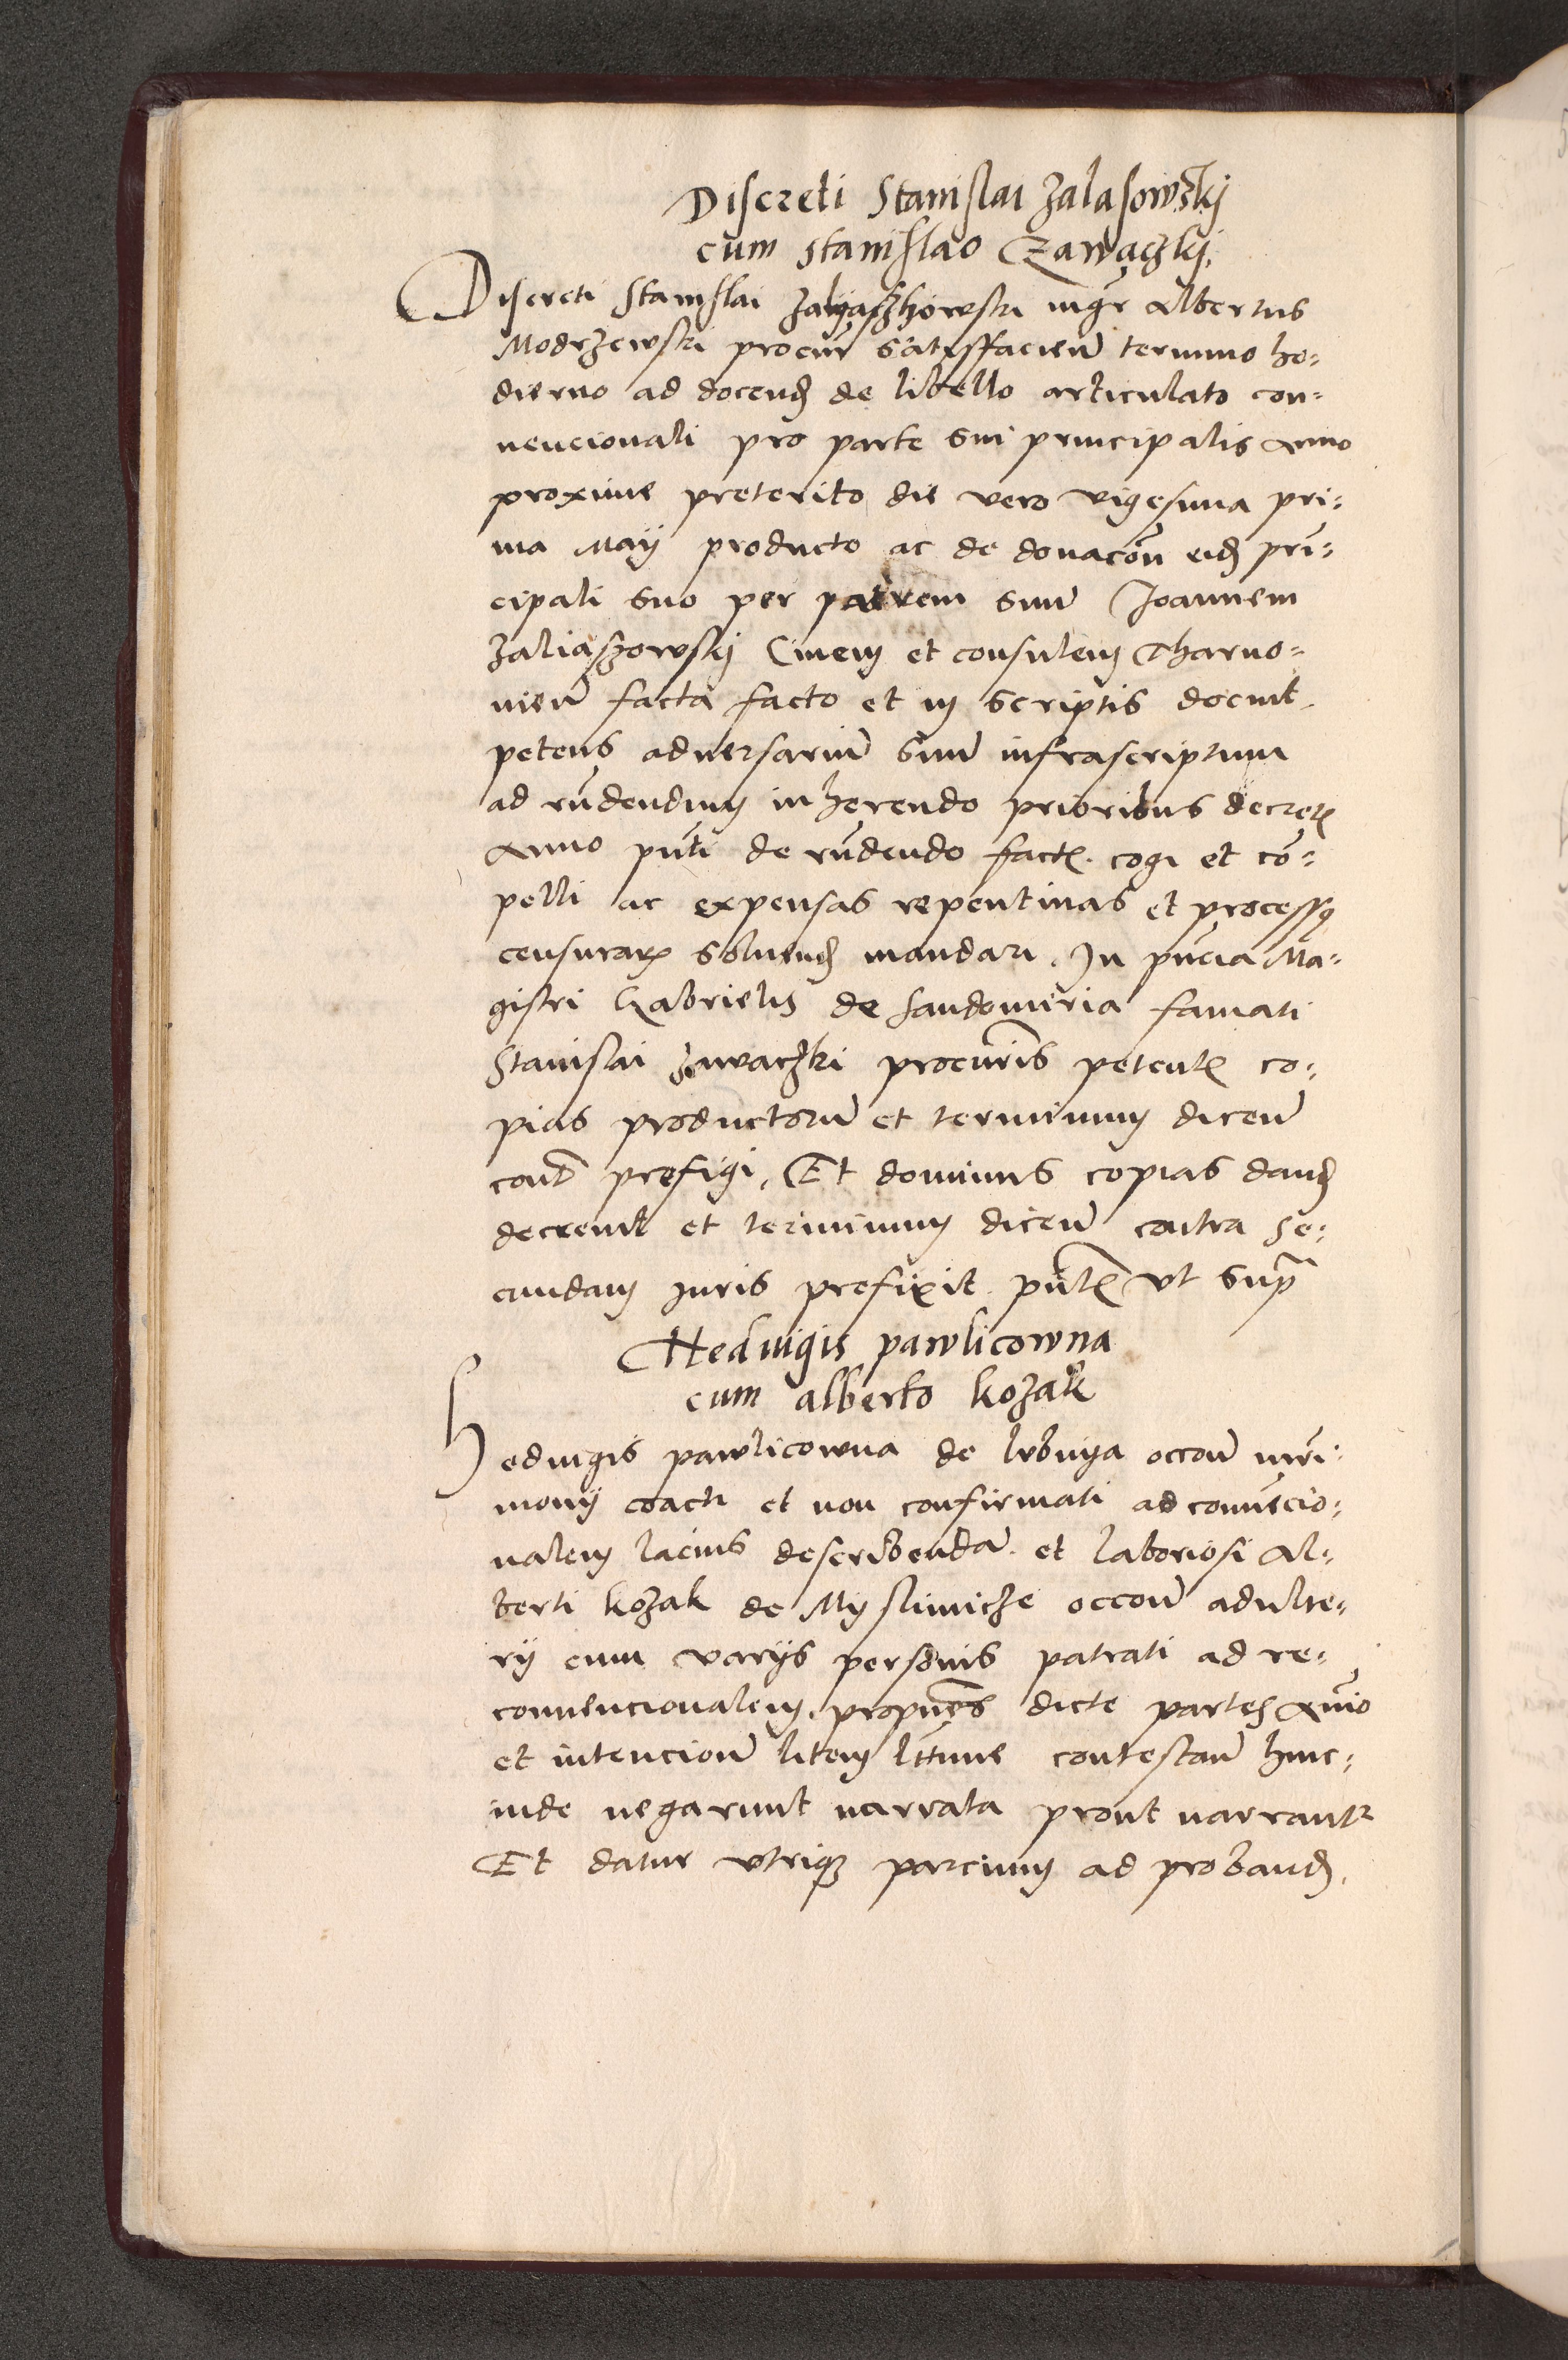 Discreti Stanislai Zalasowszkj
cum Stanislao Czawaczkj.
Discreti Stanislai Zalyaszhowski mgr Albertus
Modrzewski procur satisffacien termino ho=
dierno ad docend de libello articulato con=
vencionali pro parte sui principalis Anno
proxime preterito die vero vigesima pri=
ma Maij producto ac de donacon eid prin=
cipali suo per patrem suum Joannem
Zaliaszowskj Civem et consulem Tharno=
vien facta facto et in scriptis docuit
petens adversarium suum infrascriptum
ad rndendum inherendo prioribus decret
Anno pnti de rndendo fact. cogi et co=
pelli ac expensas repentinas et process9
censurar solvend mandari. In pncia Ma=
gistri Gabrielis de Sandomiria famati
Stanislai Zawaczki procuris petent co=
pias productoru et terminum dicen
cont prefigi. Et dominus copias dand
decrevit et terminum dicen contra se=
cundam Juris prefixit. pnt vt supra
Hedvigis pawlicowna
cum alberto kozak
Hedvigis pawlicowna de occon mri=
monij coacti et non confirmati ad convencio=
nalem lacius describendam et laboriosi Al=
berti kozak de Myslimicze occon adulte=
rij cum varijs personis patrati ad re=
convencionalem. propnes dicte partes Animo
et intencion litem lttime contestan hinc=
inde negarunt narrata prout narrantr
Et datur vtriq3 parcium ad proband.